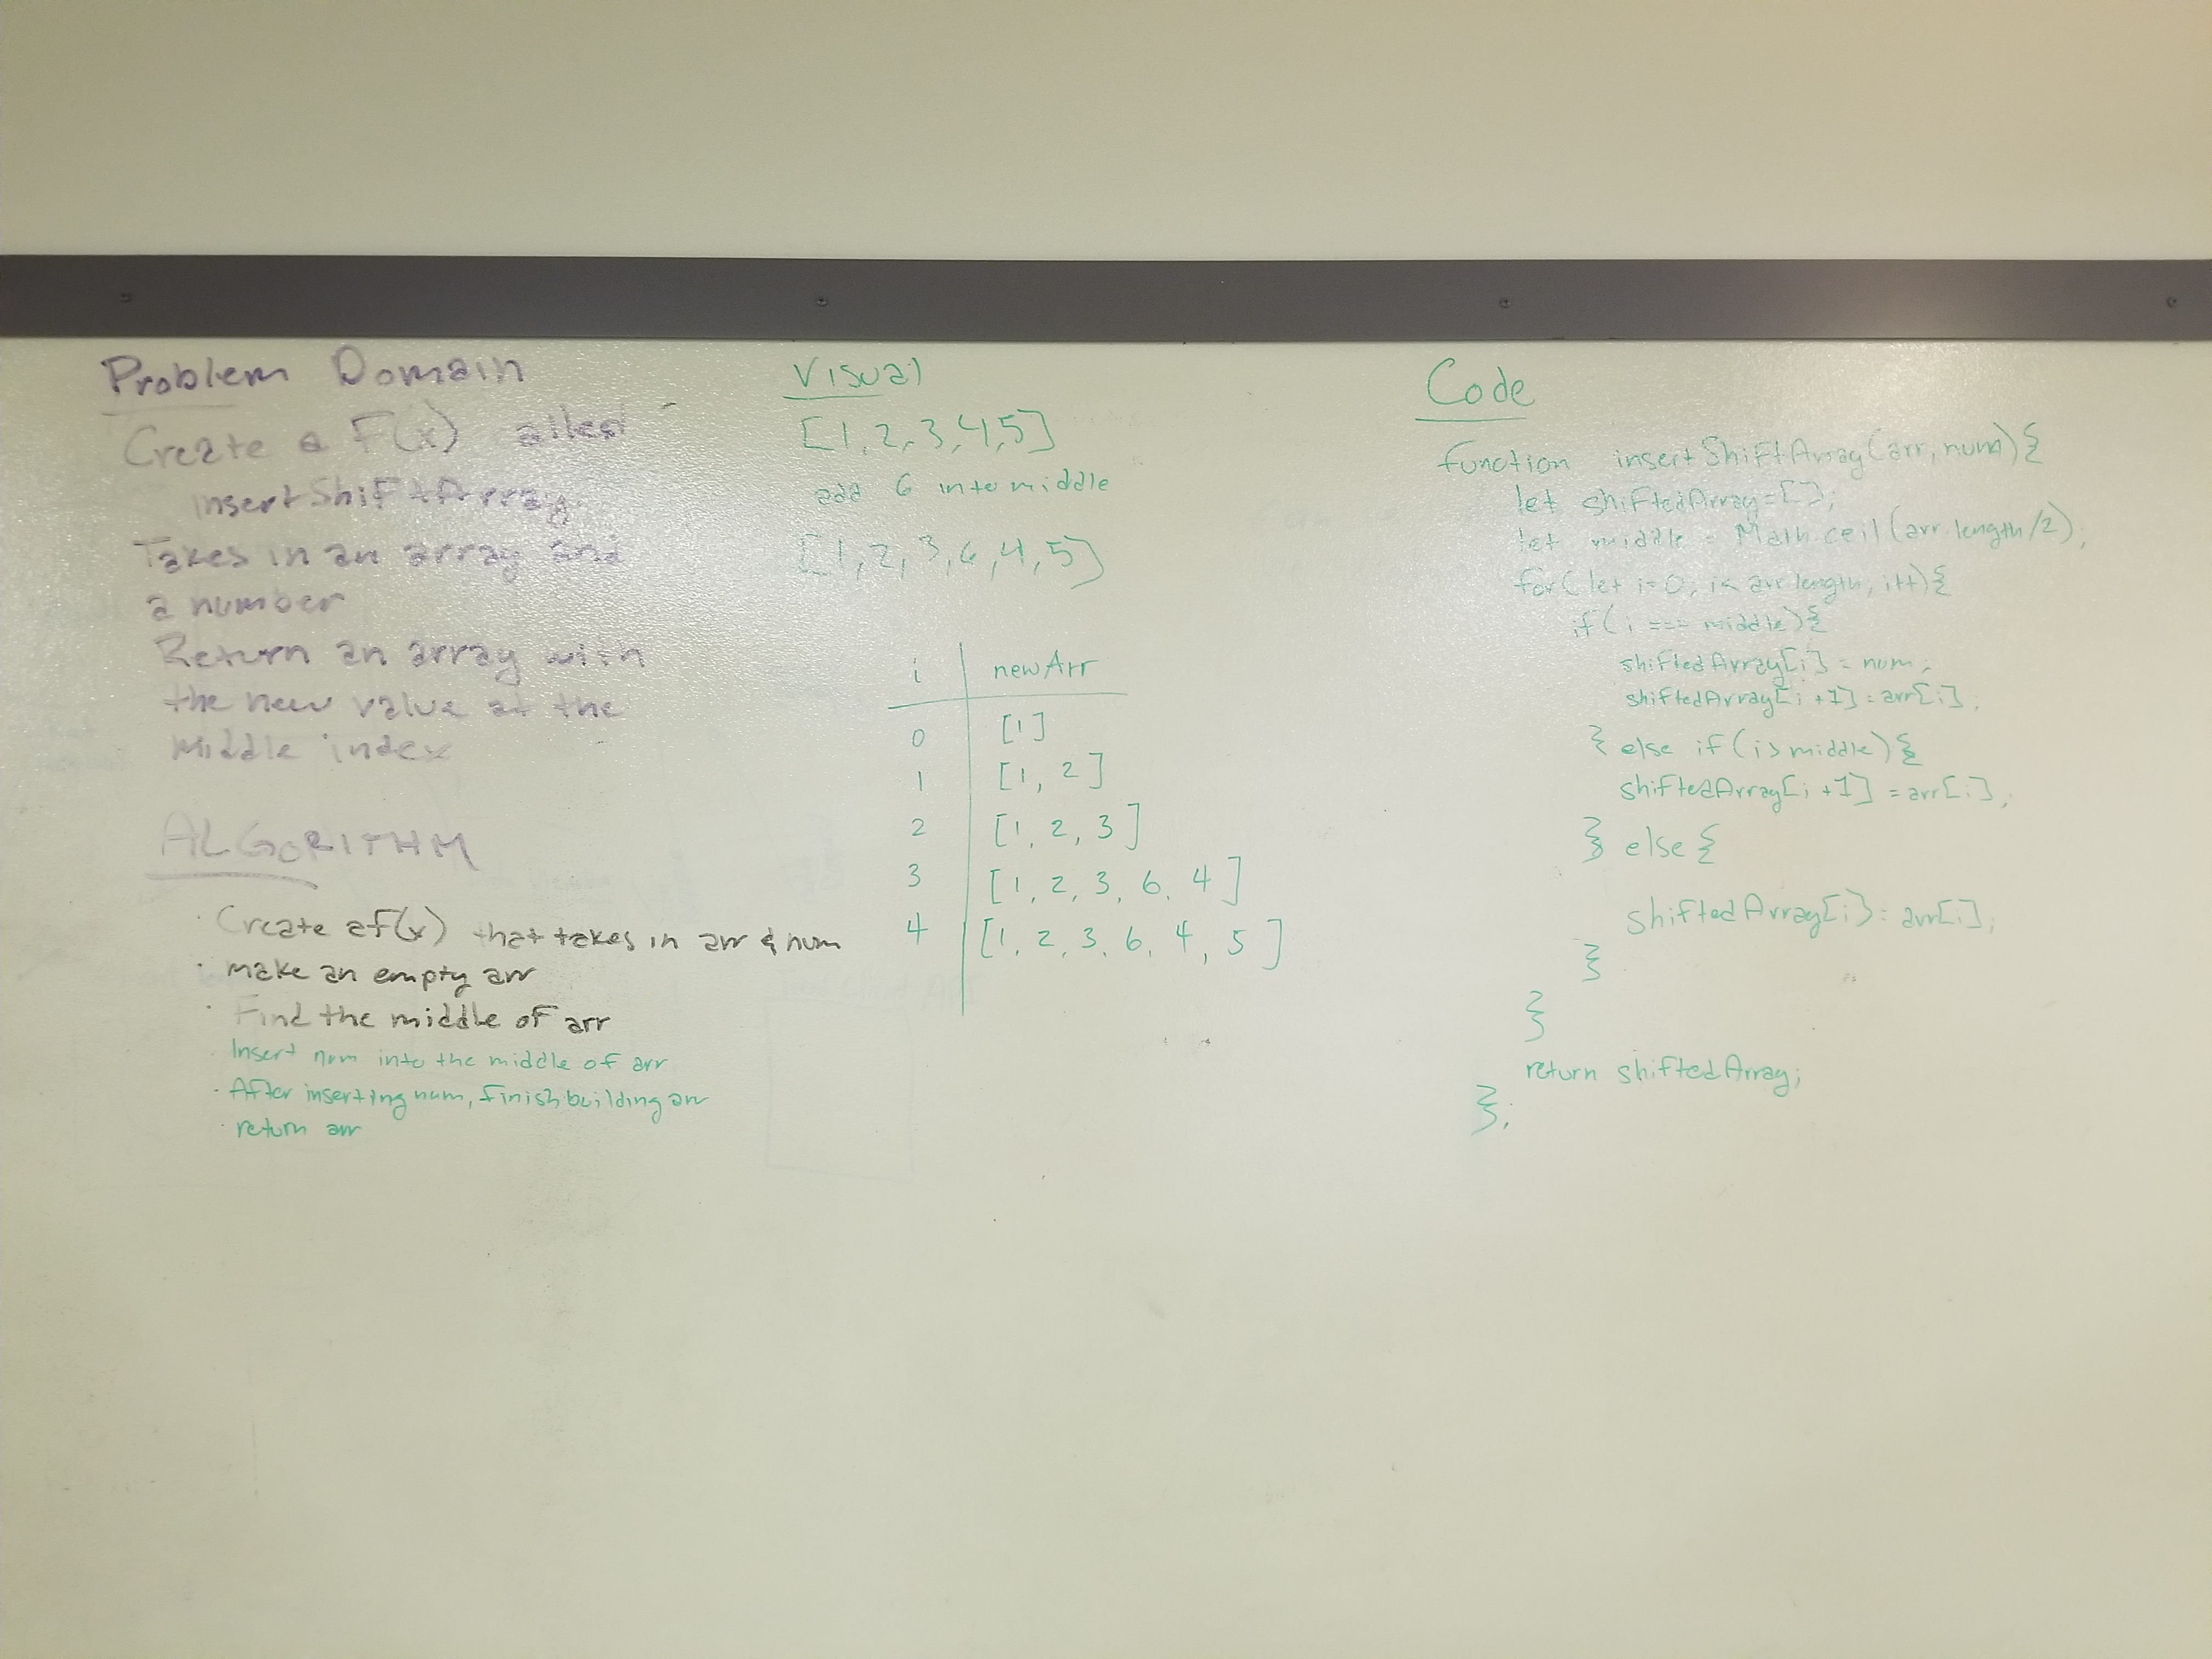 Problem Domain
Create a F(x) alled
insertShiftArray.
Takes in an array and
a number
Return an array with
the new value at the
Middle index
ALGORITHM
· Create a f(x) that takes in arr & num
· make an empty arr
· Find the middle of arr
· Insert num into the middle of arr
· After inserting num, finish building arr
· return arr
Visual
[1,2,3,4,5]
add 6 into middle
[1,2,3,6,4,5]
i newArr
0 [1]
1 [1, 2]
2 [1, 2, 3]
3 [1, 2, 3, 6, 4]
4 [1, 2, 3, 6, 4, 5]
Code
function insertShiftArray(arr, num){
let shiftedArray=[];
let middle = Math.ceil(arr.length/2);
for(let i=0; i< arr.length; i++){
if(i === middle){
shiftedArray[i] = num;
shiftedArray[i+1] = arr[i];
} else if(i > middle){
shiftedArray[i+1] = arr[i];
} else {
shiftedArray[i] = arr[i];
}
}
return shiftedArray;
};